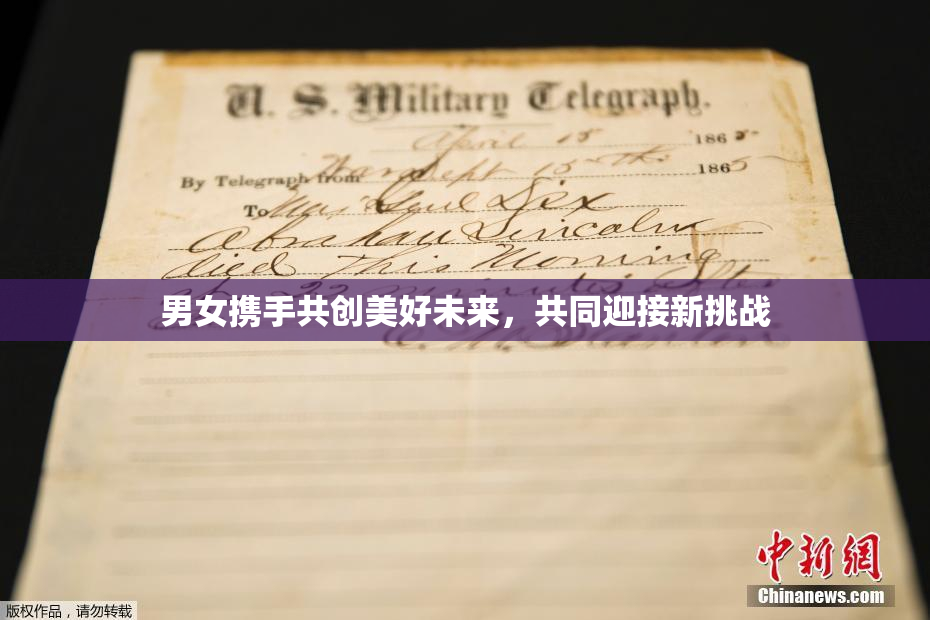 U. S. Military Telegraph.
April 15 1865
By Telegraph from War Dept 15th 1865
To Maj Genl Dix
Abraham Lincoln
died This Morning
at 22 minutes after
男女携手共创美好未来，共同迎接新挑战
E. M. Stanton
中新網
Chinanews.com
版权作品，请勿转载